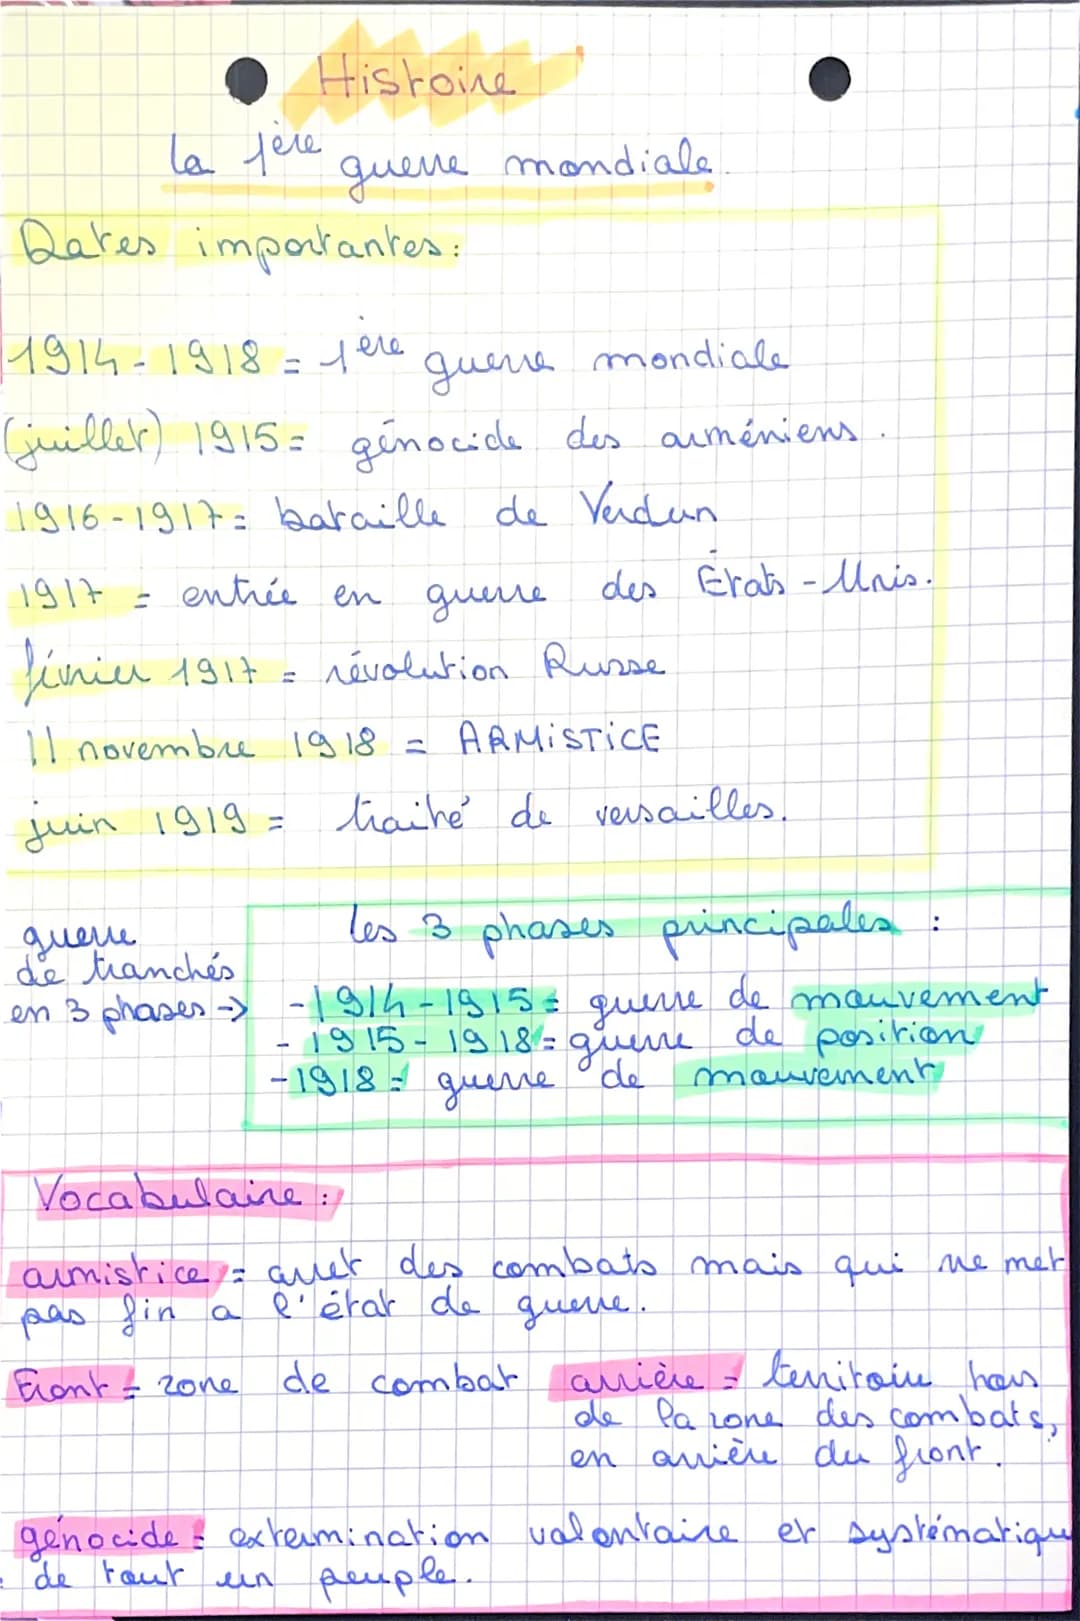 Histoire
la 1ère guerre mondiale.
Dates importantes :
1914-1918 = 1ère guerre mondiale
(juillet) 1915 = génocide des arméniens.
1916-1917 = bataille de Verdun
1917 = entrée en guerre des États-Unis.
février 1917 = révolution Russe
11 novembre 1918 = ARMiSTiCE
juin 1919 = traité de versailles.
guerre
de tranchés
en 3 phases →
les 3 phases principales :
- 1914-1915 = guerre de mouvement
- 1915-1918 = guerre de position
- 1918 = guerre de mouvement
Vocabulaire :
armistice = arret des combats mais qui ne met
pas fin a l'état de guerre.
Front = zone de combat
arrière = territoire hors
de la zone des combats,
en arrière du front.
génocide = extermination volontaire et systématique
de tout un peuple.